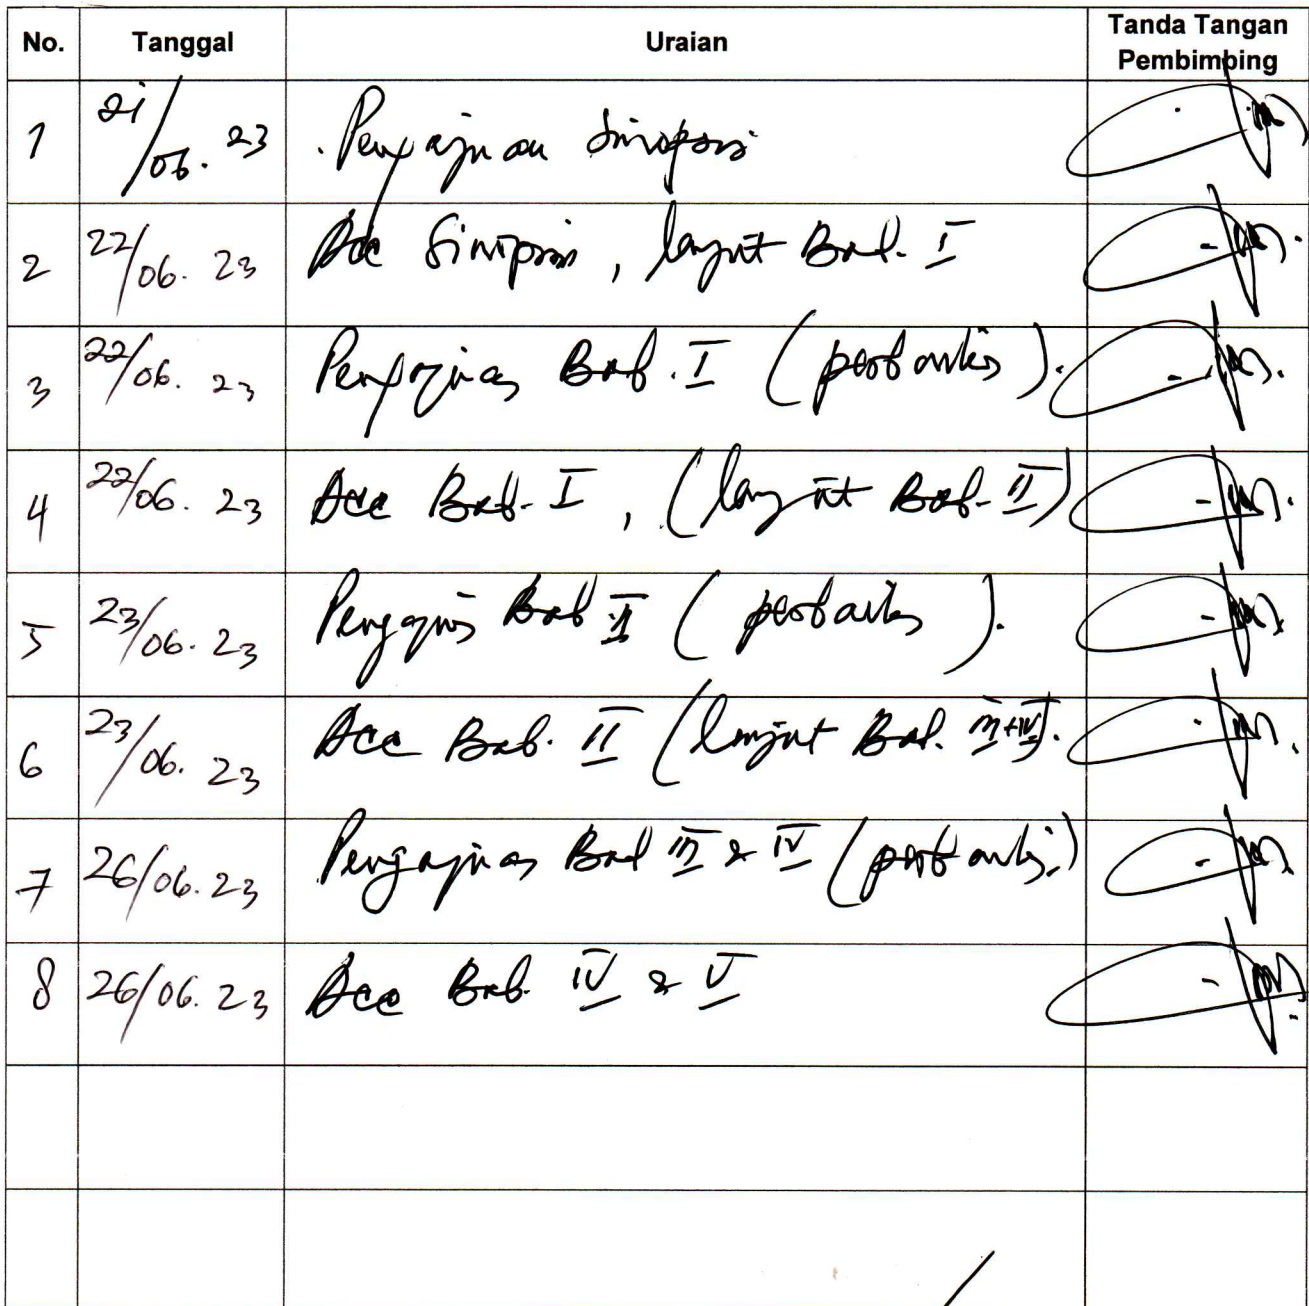 No. Tanggal Uraian Tanda Tangan Pembimbing
1 21/06. 23 . Pengajuan Sinopsis
2 22/06. 23 Acc Sinopsis, lanjut Bab. I
3 22/06. 23 Pengajuan Bab. I (perbaikan).
4 22/06. 23 Acc Bab. I, (lanjut Bab. II)
5 23/06. 23 Pengajuan Bab II (perbaikan).
6 23/06. 23 Acc Bab. II (lanjut Bab. III+IV).
7 26/06. 23 Pengajuan Bab III & IV (perbaikan)
8 26/06. 23 Acc Bab. IV & V